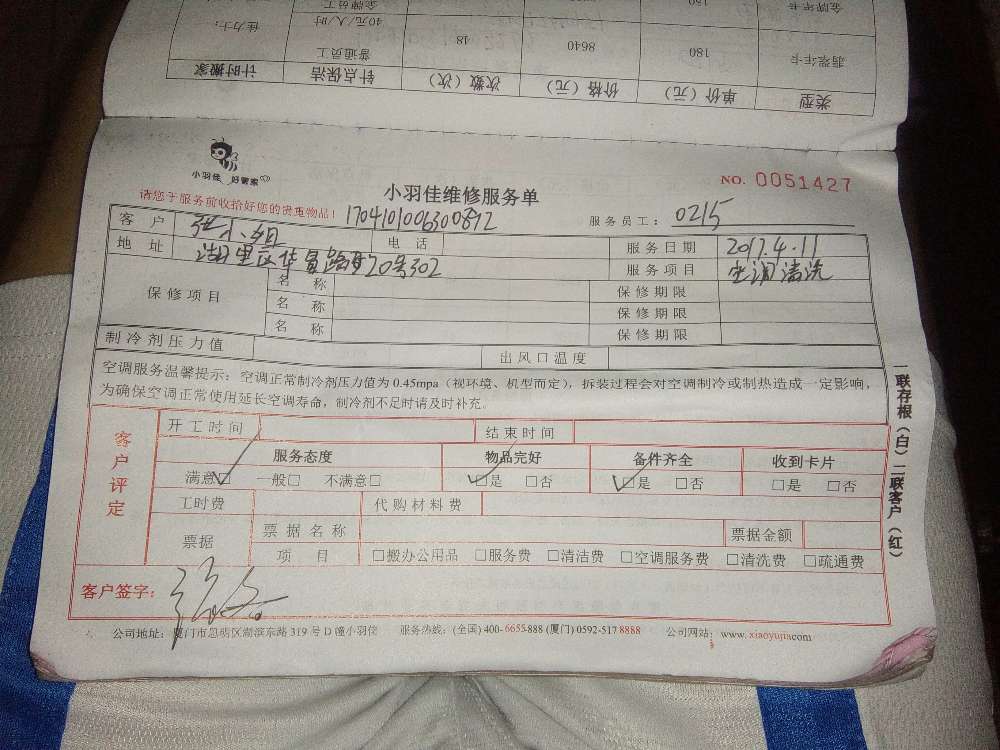 金牌年卡 150 金牌员工
翡翠年卡 180 8640 48 普通员工 40元/人/时 佳力士：
类型 单价（元） 价格（元） 次数（次） 针点保洁 计时搬家
小羽佳 好管家
小羽佳维修服务单
NO. 0051427
请您于服务前收拾好您的贵重物品！ 1704101006300812 服务员工： 0215
客户 张小姐 电话 服务日期 2017.4.11
地址 湖里区 路 20号302 服务项目 空调清洗
保修项目 名称 保修期限
名称 保修期限
名称 保修期限
制冷剂压力值 出风口温度
空调服务温馨提示：空调正常制冷剂压力值为 0.45mpa（视环境、机型而定），拆装过程会对空调制冷或制热造成一定影响，
为确保空调正常使用延长空调寿命，制冷剂不足时请及时补充。
客户评定
开工时间 结束时间
服务态度 物品完好 备件齐全 收到卡片
满意☑ 一般□ 不满意□ ☑是 □否 ☑是 □否 □是 □否
工时费 代购材料费
票据 票据名称 票据金额
项目 □搬办公用品 □服务费 □清洁费 □空调服务费 □清洗费 □疏通费
客户签字：
联存根（白）二联客户（红）
公司地址：厦门市思明区湖滨东路 319 号 D 幢小羽佳 服务热线：(全国) 400-6655-888 (厦门) 0592-517 8888 公司网站：www.xiaoyujia.com